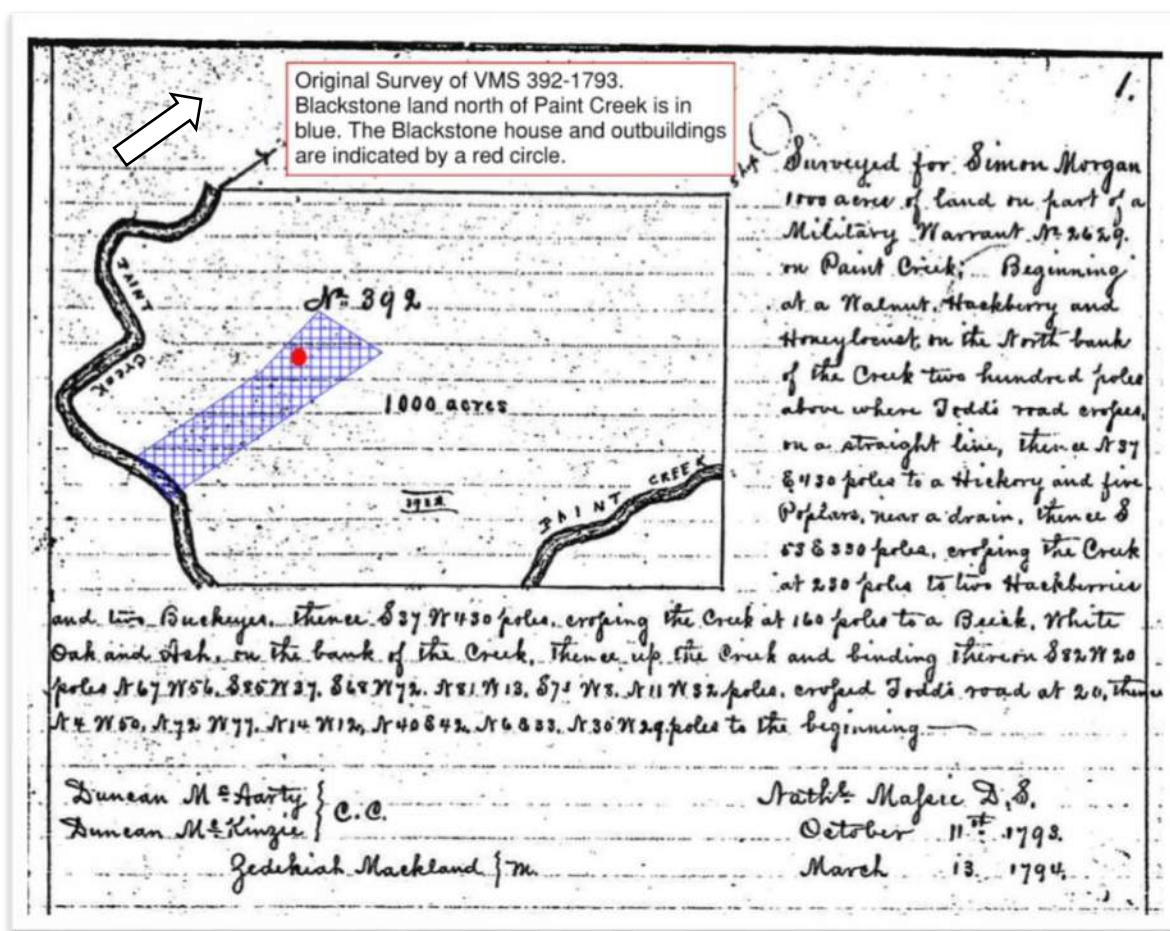 Original Survey of VMS 392-1793.
Blackstone land north of Paint Creek is in
blue. The Blackstone house and outbuildings
are indicated by a red circle.
1.
Surveyed for Simon Morgan
1000 acres of land on part of a
Military Warrant No 2629.
on Paint Creek; Beginning
at a Walnut, Hackberry and
Honeylocust, on the North bank
of the Creek two hundred poles
above where Todds road crosses,
on a straight line, thence N37
E 430 poles to a Hickory and five
Poplars, near a drain, thence S
53 E 330 poles, crossing the Creek
at 230 poles to two Hackberries
and two Buckeyes, thence S37 W430 poles, crossing the Creek at 160 poles to a Beech, White
Oak and Ash, on the bank of the Creek, thence up the Creek and binding thereon S82 W20
poles N67 W56, S85 W37, S68 W72, N81 W13, S75 W8, N11 W32 poles, crossed Todds road at 20, thence
N4 W50, N72 W77, N14 W12, N40 E42, N6 E33, N30 W29 poles to the beginning
PAINT Creek
No 392
1000 acres
PAINT CREEK
Duncan McAarty } C.C.
Duncan McKinzie
Zedekiah Mackland } M.
Nathl Massie D.S.
October 11st 1793.
March 13 1794.